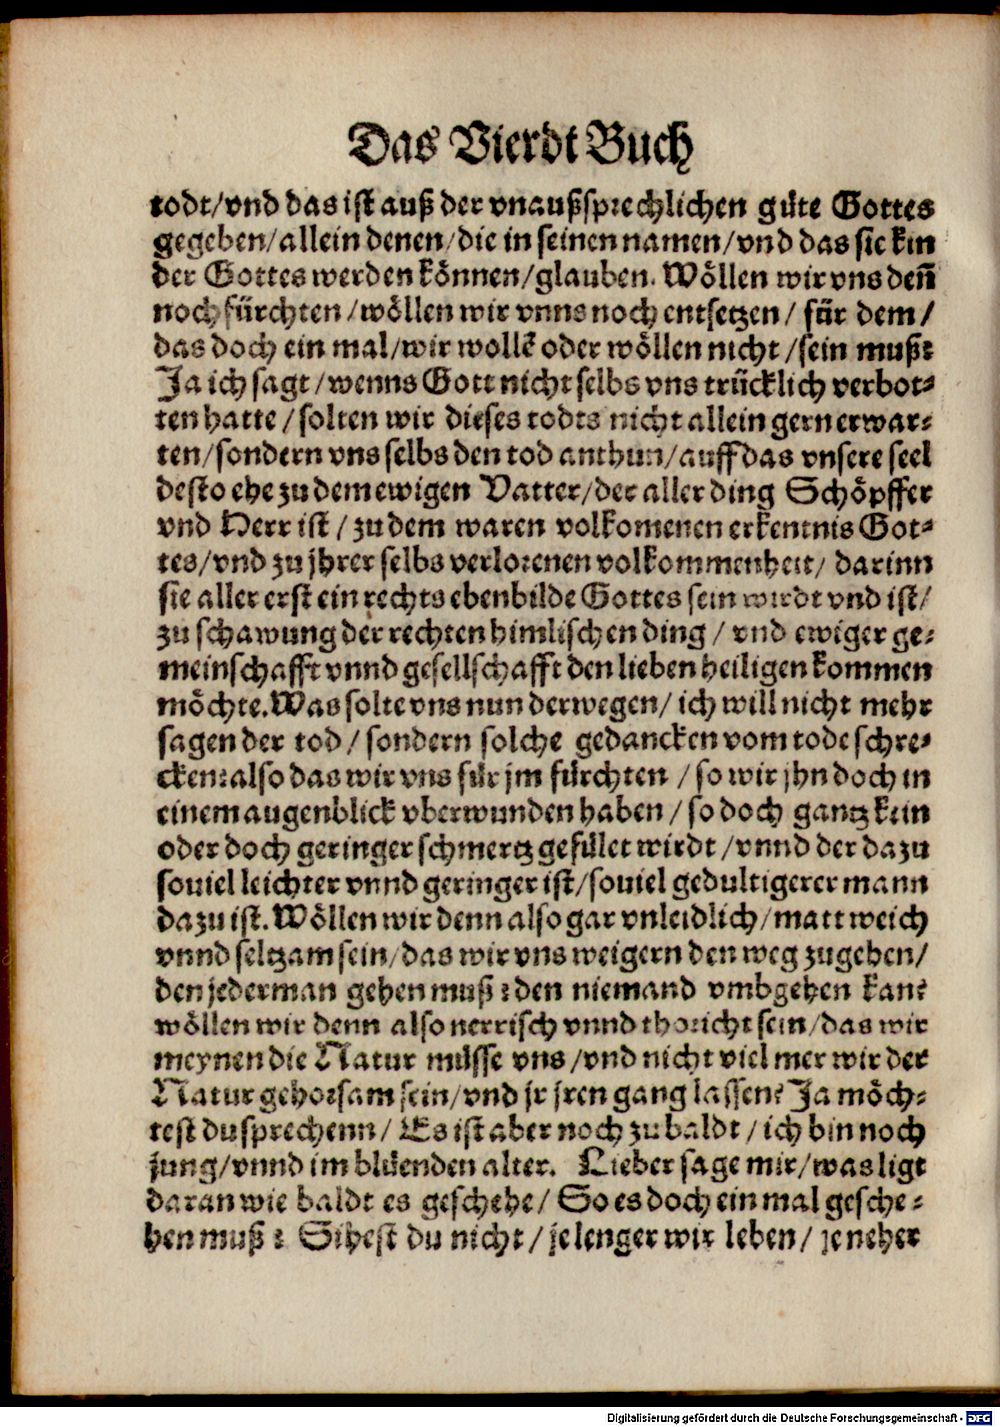 Das Vierdt Buch
todt/vnd das ist auß der vnaußsprechlichen güte Gottes
gegeben/allein denen/die in seinen namen/vnd das sie kin
der Gottes werden können/glauben. Wöllen wir vns deñ
noch fürchten/wöllen wir vnns noch entsetzen/ für dem/
das doch ein mal/wir wollẽ oder wöllen nicht/sein muß?
Ja ich sagt/wenns Gott nicht selbs vns trücklich verbot-
ten hatte/solten wir dieses todts nicht allein gern erwar-
ten/sondern vns selbs den tod anthun/auff das vnsere seel
desto ehe zu dem ewigen Vatter/der aller ding Schöpffer
vnd Herr ist/zu dem waren volkomenen erkentnis Got-
tes/vnd zu jhrer selbs verlorenen volkommenheit/ darinn
sie aller erst ein rechts ebenbilde Gottes sein wirdt vnd ist/
zu schawung der rechten himlischen ding/ vnd ewiger ge-
meinschafft vnnd gesellschafft den lieben heiligen kommen
möchte. Was solte vns nun derwegen/ ich will nicht mehr
sagen der tod/sondern solche gedancken vom tode schre-
cken? also das wir vns für jm fürchten/so wir jhn doch in
einem augenblick vberwunden haben/so doch gantz kein
oder doch geringer schmertz gefület wirdt/vnnd der dazu
souiel leichter vnnd geringer ist/souiel gedultigerer mann
dazu ist. Wöllen wir denn also gar vnleidlich/matt weich
vnnd seltzam sein/das wir vns weigern den weg zugehen/
den jederman gehen muß? den niemand vmbgehen kan?
wöllen wir denn also nerrisch vnnd thöricht sein/das wir
meynen die Natur müsse vns/vnd nicht viel mer wir der
Natur gehorsam sein/vnd jr jren gang lassen? Ja möch-
test du sprechenn/ Es ist aber noch zu baldt/ich bin noch
jung/vnnd im blüenden alter. Lieber sage mir/was ligt
daran wie baldt es geschehe/ So es doch ein mal gesche-
hen muß? Sihest du nicht/je lenger wir leben/ je neher
Digitalisierung gefördert durch die Deutsche Forschungsgemeinschaft - DFG